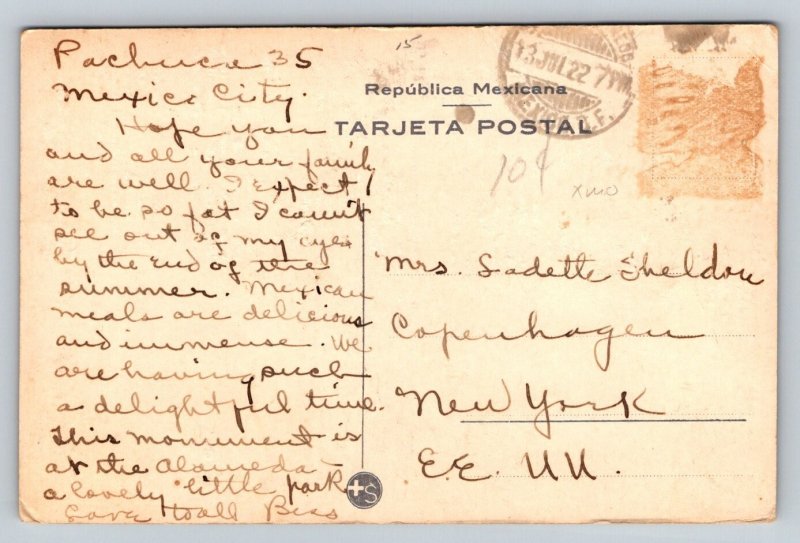 Pachuca 35
Mexico City.
Hope you
and all your family
are well. I expect
to be so fat I can't
see out of my eyes
by the end of the
summer. Mexican
meals are delicious
and immense. We
are having such
a delightful time.
This monument is
at the Alameda -
a lovely little park
Love to all
15
República Mexicana
TARJETA POSTAL
13 JUL 22 7 PM
D.F.
10¢
XMO
Mrs. Sadette Sheldon
Copenhagen
New York
E.E. UU.
+S